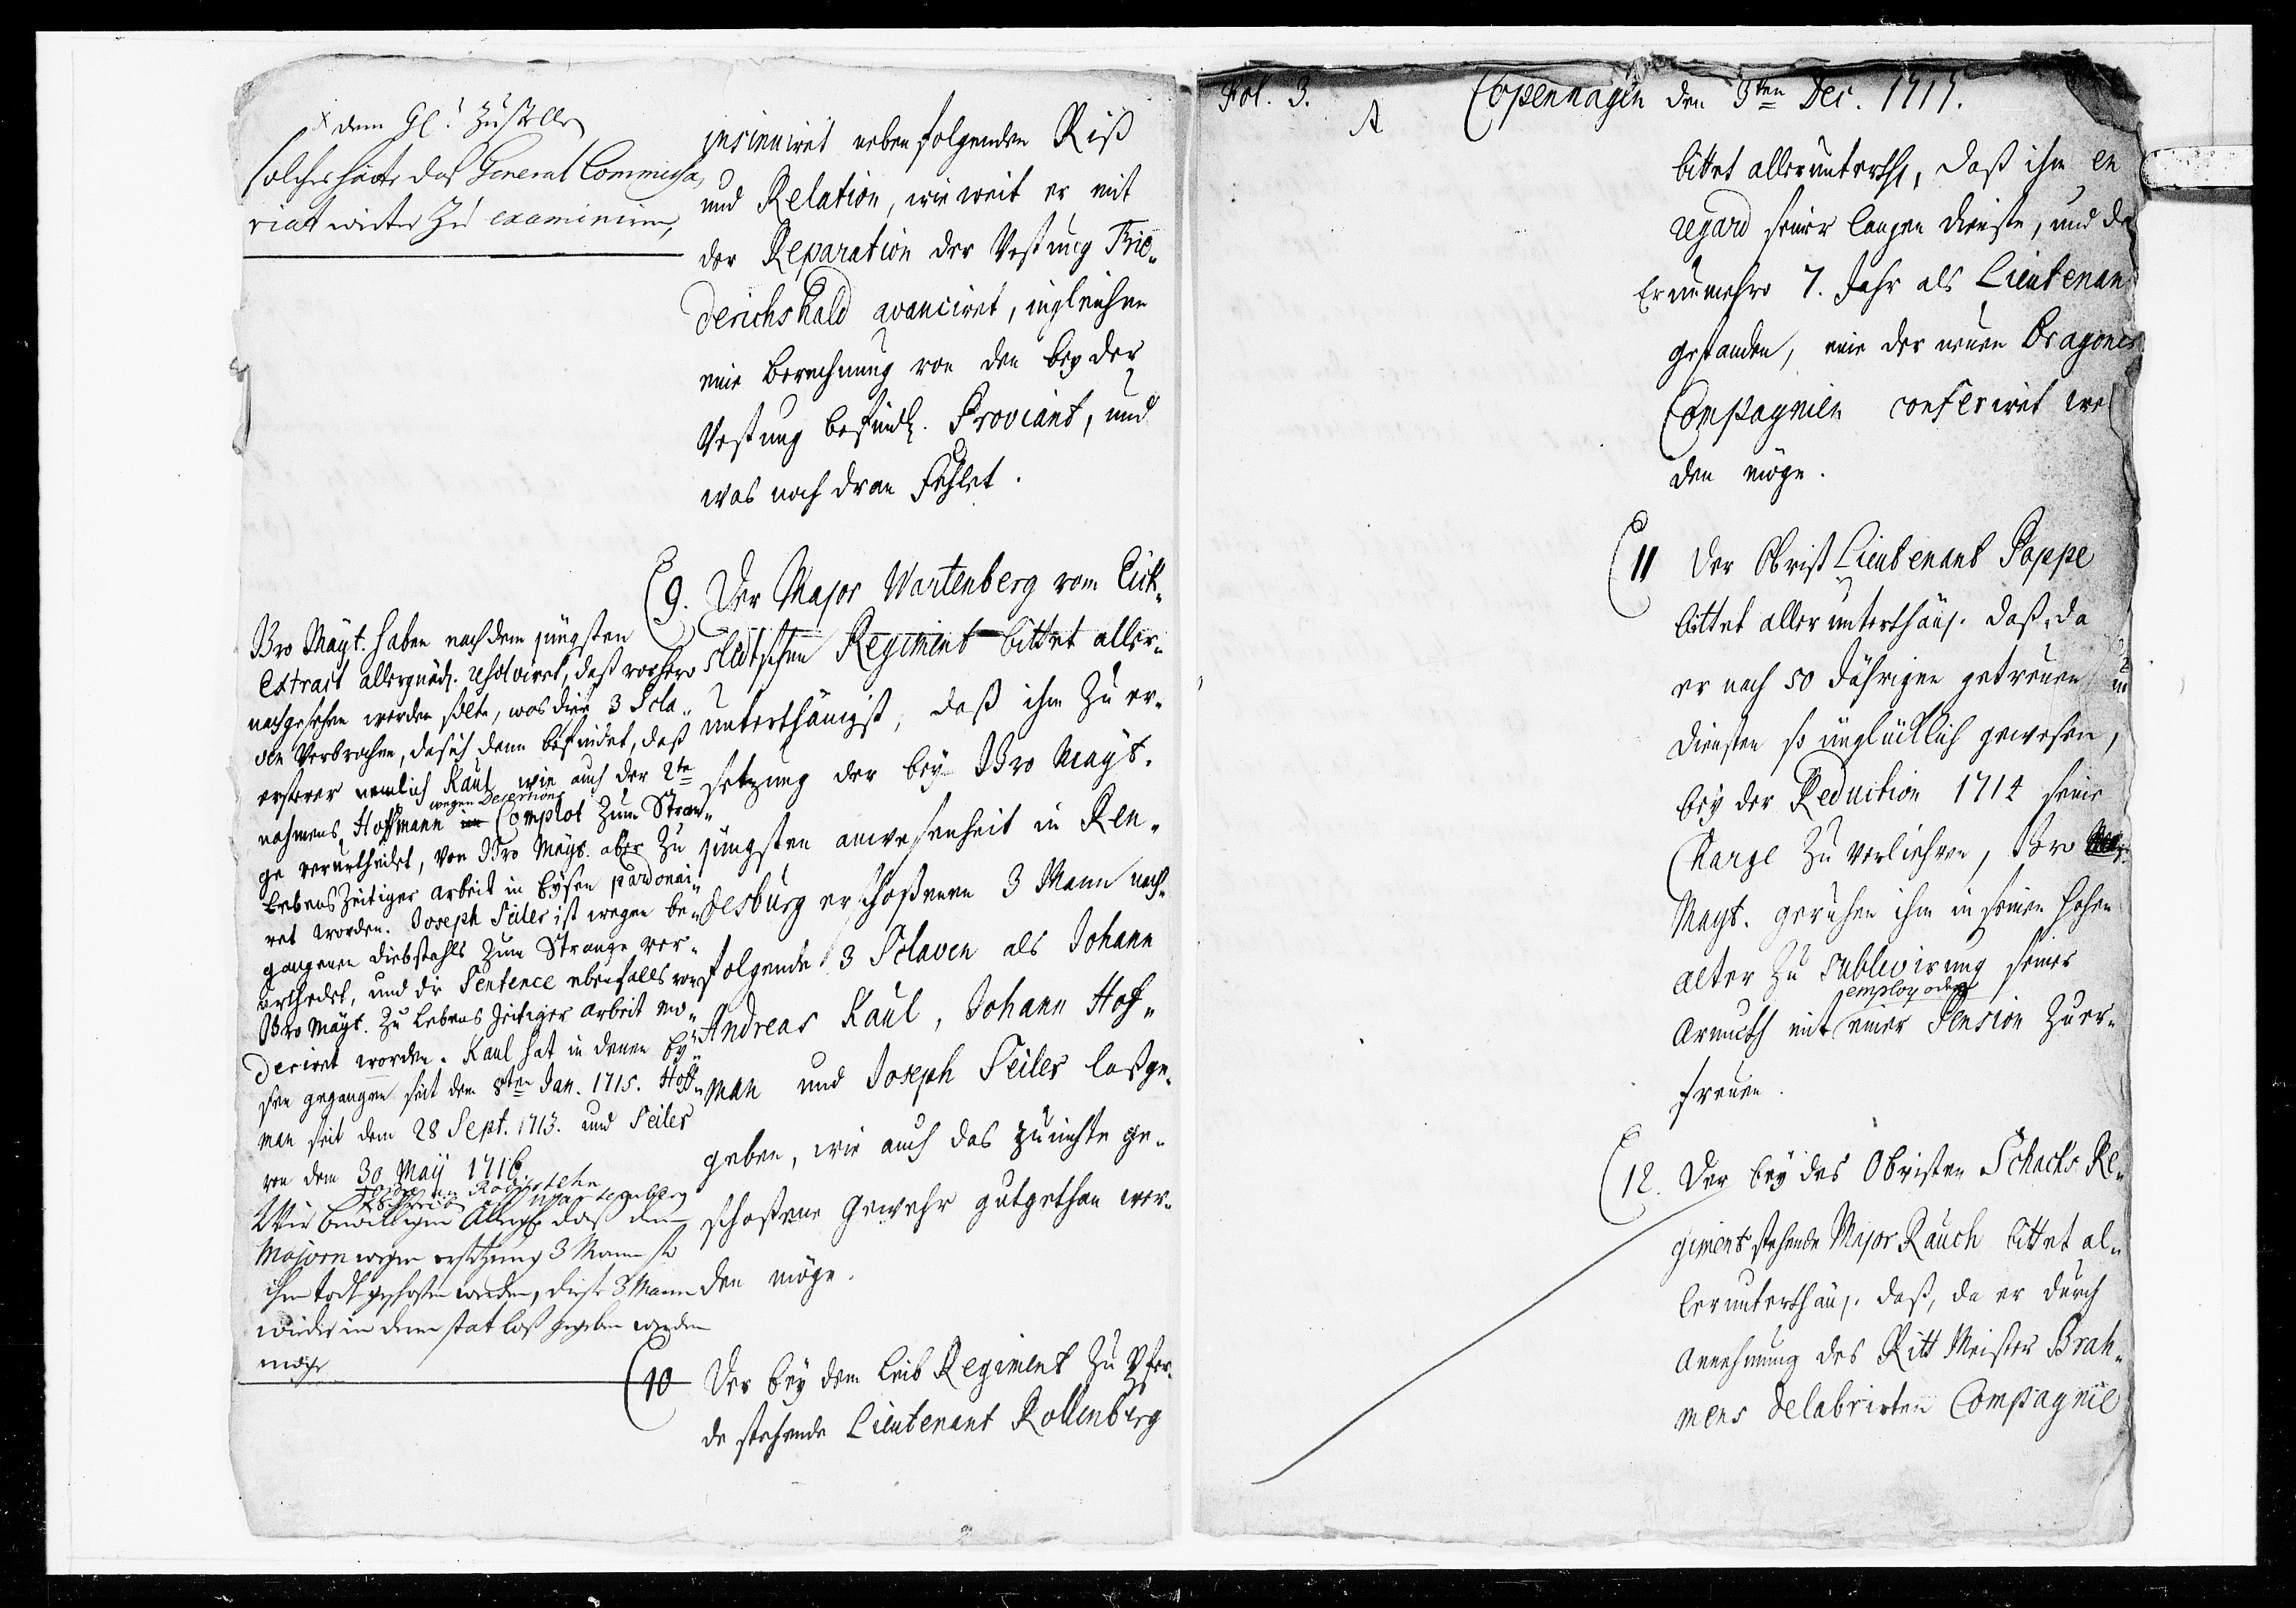 x dem Gl. Zustellen
solches hätte das General Commissa
riatt weiter zu examiniren,
insinuiret neben folgenden Riß
und Relation, wie weit er mit
der Reparation der Vestung Frie„
derichshald avanciret, ingleichen
eine Berechnung von den bey der
Vestung befindl. Proviant, und
was noch dran Fehlet.
9. Der Major Wartenberg vom Eick„
stedtschen Regiment bittet aller„
unterthänigst, daß ihm Zu er„
setzung der bey Ihro Mayt.
jüngsten anwesenheit in Ren„
desburg erschoßenen 3 Mann nach„
folgende 3 Sclaven als Johann
Andreas Kaul, Johann Hof„
man und Joseph Seiler loßge„
geben, wie auch das zu nichte ge„
schoßene Gewehr gutgethan wer„
den möge.
Ihro Mayt. haben nach dem jüngsten
Extract allergnäd. resolviret, daß vorhero
nachgesehen werden solte, was diese 3 Scla„
ven Verbrochen, da sich dann befindet, daß
ersterer nemlich Kaul wie auch der 2te
wegen Desertions
nahmens Hoffmann Complot Zum Stran„
ge verurtheilet, von Ihro Mayt. aber Zu
LebensZeitiger arbeit in Eysen pardonni„
ret worden. Joseph Seiler ist wegen be„
gangenen diebstahls Zum Strange ver„
urtheilet, und die Sentence ebenfalls von
Ihro Mayt. Zu Lebens Zeitiger arbeit mo„
deriret worden. Kaul hat in denen Ey„
sen gegangen seit dem 8ten Jan. 1715. Hoff„
man seit dem 28 Sept. 1713. und Seiler
von dem 30 May 1716.
Wir bewilligen Allergn. daß dem
Majorn wegen ersetzung 3 Mann so
ihm todt geschoßen worden, diese 3 Mann
wieder in deren stat loß gegeben werden
möge
10 Der bey dem Leib Regiment Zu Pfer„
de stehende Lieutenant Rollenberg
Fol. 3.
A
Copenhagen den 3ten Dec. 1717.
bittet allerunterth, daß ihm en
regard seiner langen dienste, und da
Er nunmehro 7. Jahr als Lieutenant
gestanden, eine der neuen Dragoner
Compagnien conferiret wer
den möge.
11 Der Obrist Lieutenant Poppe
bittet allerunterthäng. daß, da
er nach 50 Jährigen getreuen
diensten so unglücklich gewesen,
bey der Reduction 1714 seine
Charge Zu verliehren, Ihro
Mayt. geruhen ihm in seinem hohen
alter Zu Sublevirung seiner
employ oder
Armuth mit einer Pension Zu er„
freuen.
12. Der bey des Obristen Schacks Re„
giment stehende Major Rauch bittet al„
lerunterthäng. daß, da er durch
Annehmung des Ritt Meister Brah„
mens delabrirten Compagnie